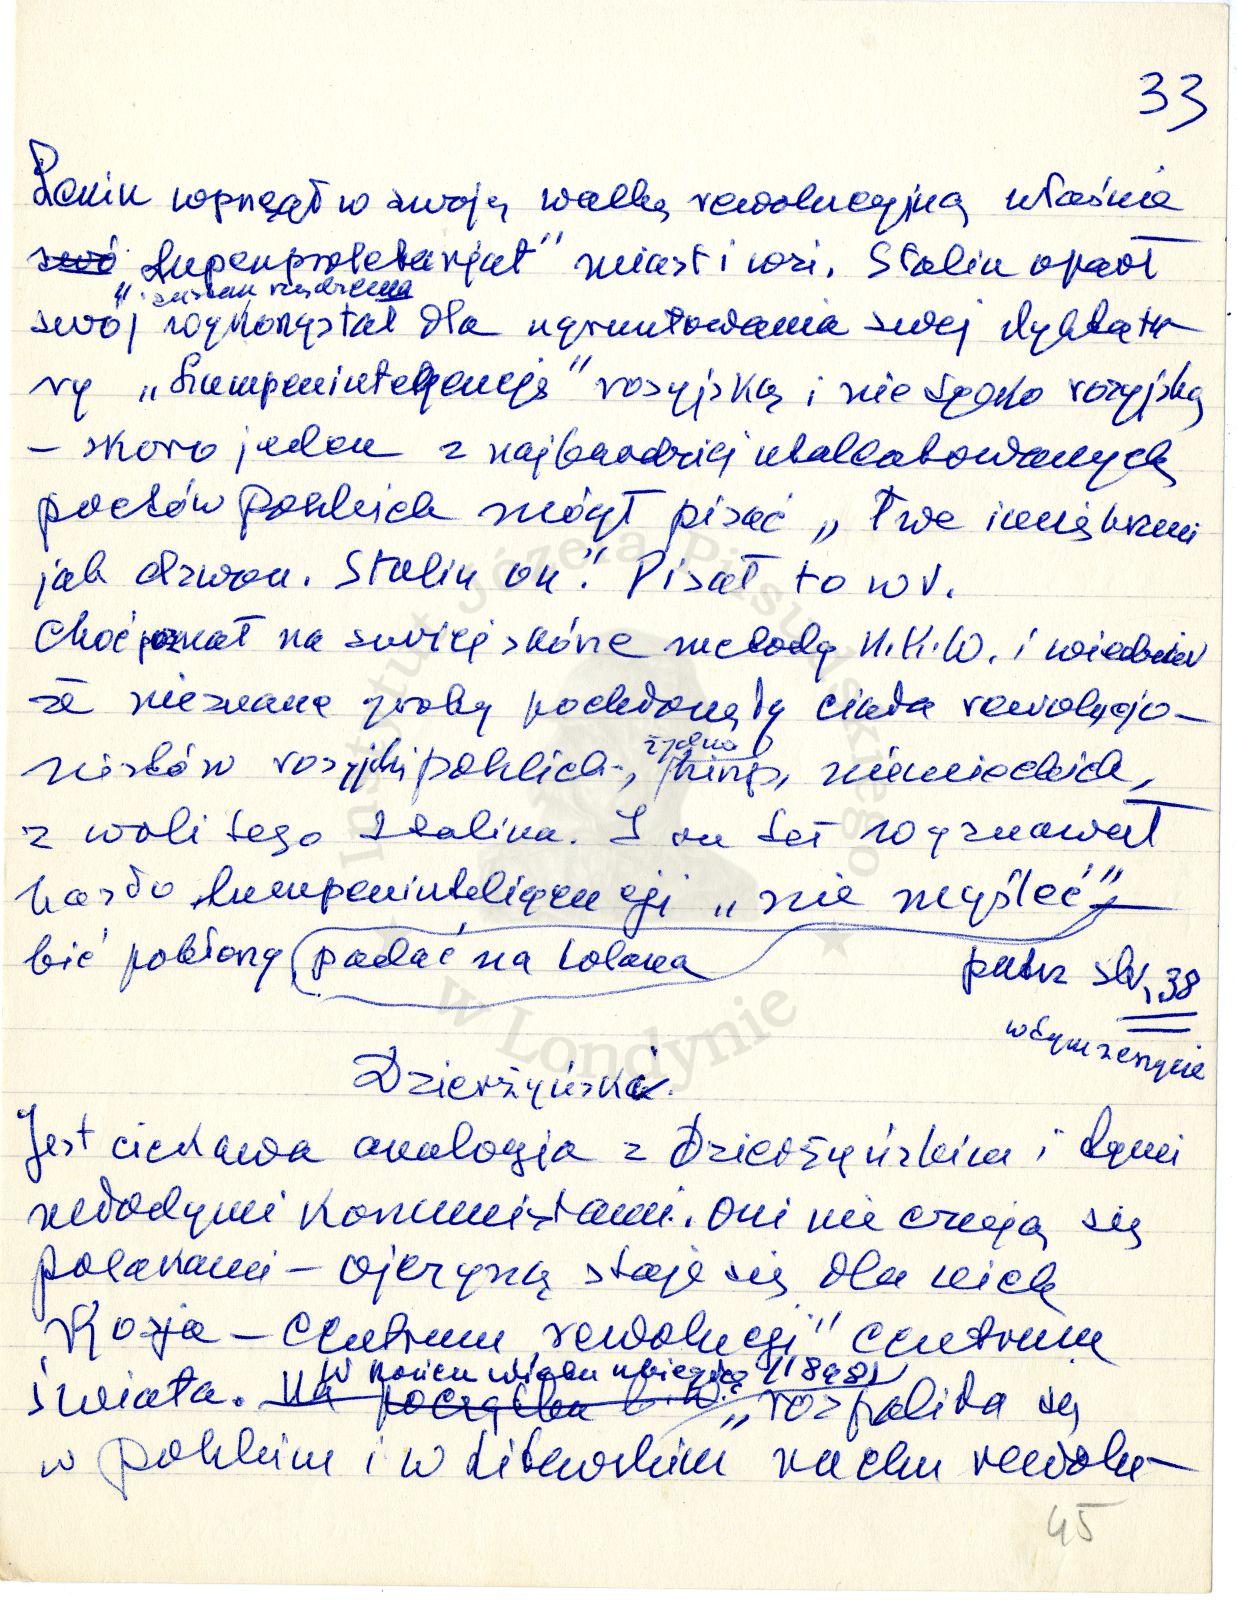 33
Lenin wprzągł w swoją walkę rewolucyjną właśnie
swó „lupenproletarjat" miast i wsi. Stalin oparł
swój wykorzystał dla ugruntowania swej dyktatu-
ry „Lumpeninteligencję" rosyjską i nie tylko rosyjską
– skoro jeden z najbardziej utalentowanych
poetów polskich mógł pisać „Twe imię brzmi
jak dzwon. Stalin on". Pisał to w r.
Choć poznał na swojej skórze metody N.K.W. i wiedział
że nieznane groby pochłonęły ciała rewolucjo-
żydow
nistów rosyjski polskich, niemieckich,
z woli tego Stalina. I on też wyznawał
hasło lumpeninteligencji „nie myśleć"
bić pokłony padać na kolana
patrz str. 38
w tym zeszycie
Dzierżyński.
Jest ciekawa analogja z Dzierżyńskim i tymi
młodymi komunistami. Oni nie czują się
polakami – ojczyzną staje się dla nich
Rosja – centrum rewolucji" centrum
W końcu wieku ubiegłego (1898)
świata. Na początku b. w. „rozpaliła się
w polskim i w litewskim" ruchu rewolu-
45
Instytut Józefa Piłsudskiego
w Londynie